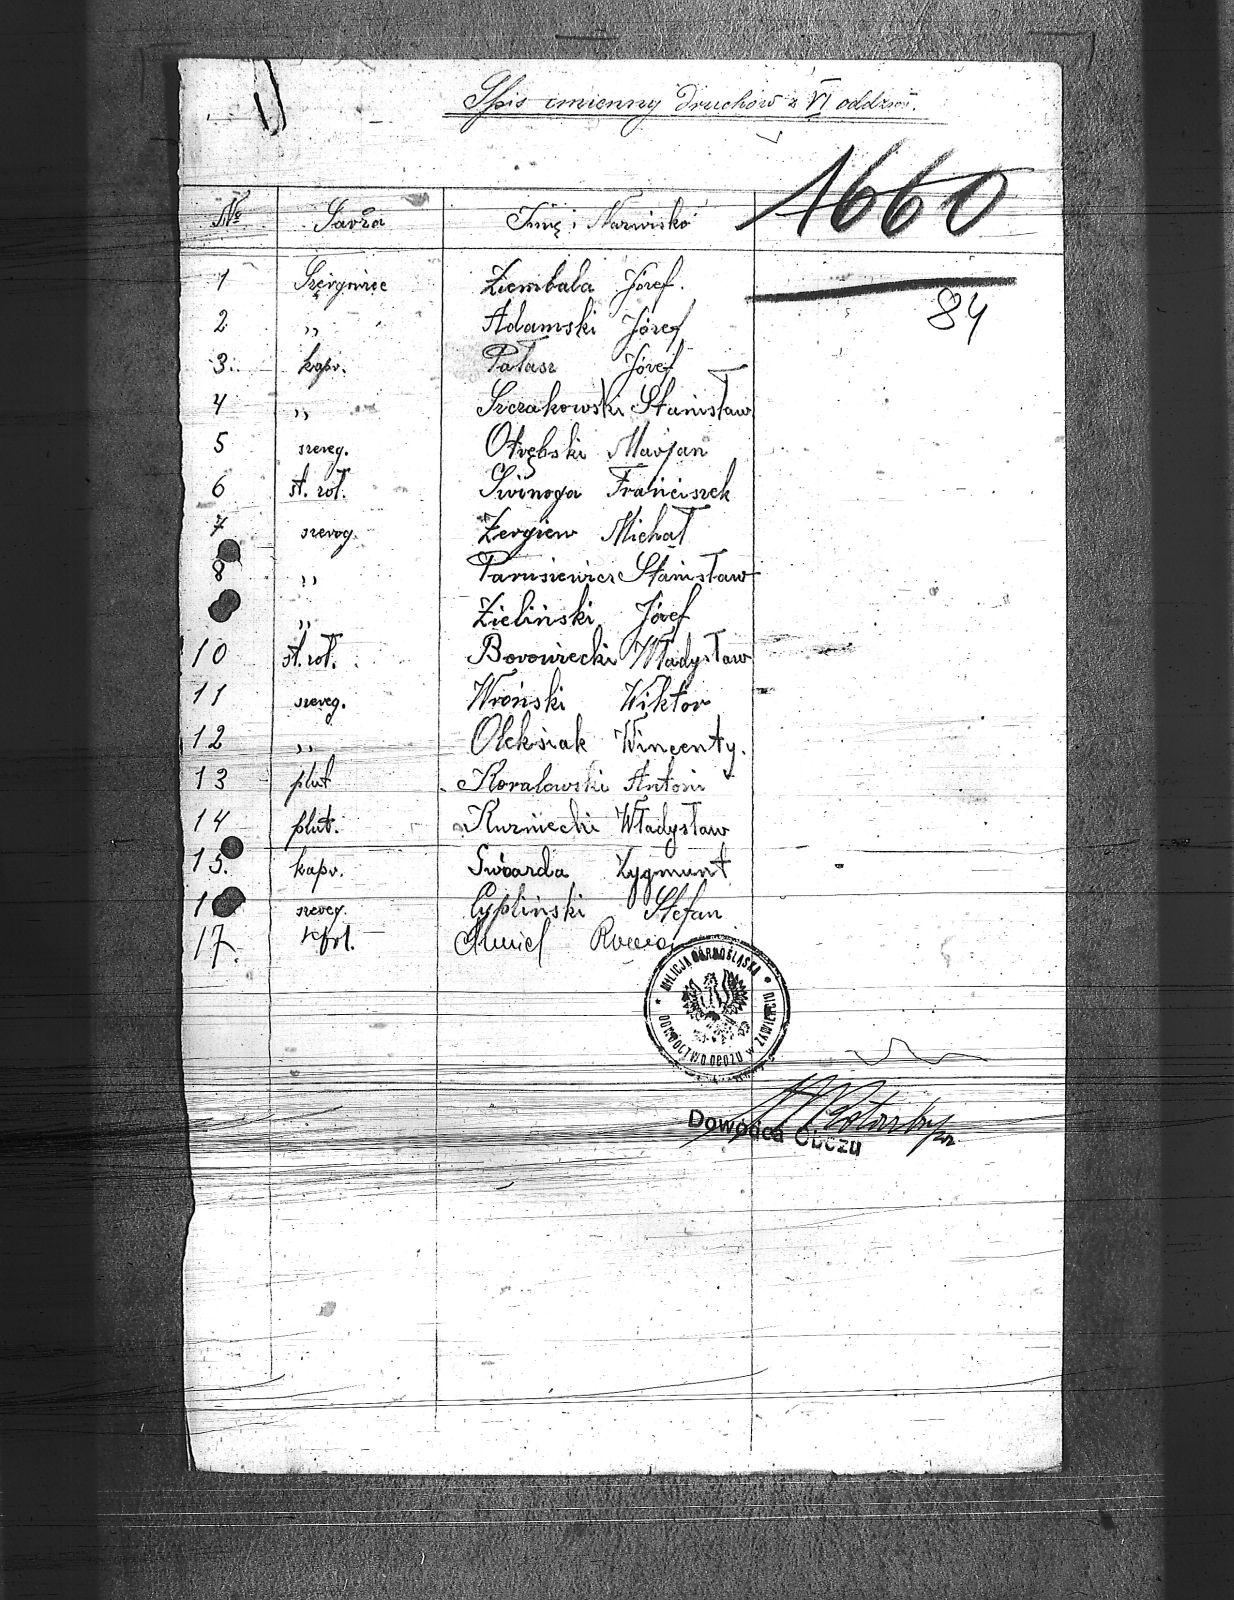 Spis imienny Druchów z VI oddział.
1660
84
No Szarża Imię i Nazwisko
1 Szeregowiec Ziembala Józef.
2 ,, Adamski Józef
3. kapr. Pałasz Józef
4 ,, Szczakowski Stanisław
5 szereg. Otrębski Marjan
6 st. żoł. Swinoga Franciszek
7 szereg. Zergiew Michał
8 ,, Parusiewicz Stanisław
,, Zieliński Józef
10 st. żoł. Borowiecki Władysław
11 szereg. Wroński Wiktor
12 ,, Oleksiak Wincenty.
13 plut Koralowski Antoni
14 plut. Kuźniecki Władysław
15. kapr. Swoarda Zygmunt
1 szereg. Cypliński Stefan
17.
MILICJA GÓRNOŚLĄSKA
DOWÓDCTWO OBOZU W ZAWIERCIU
Dowódca Obozu